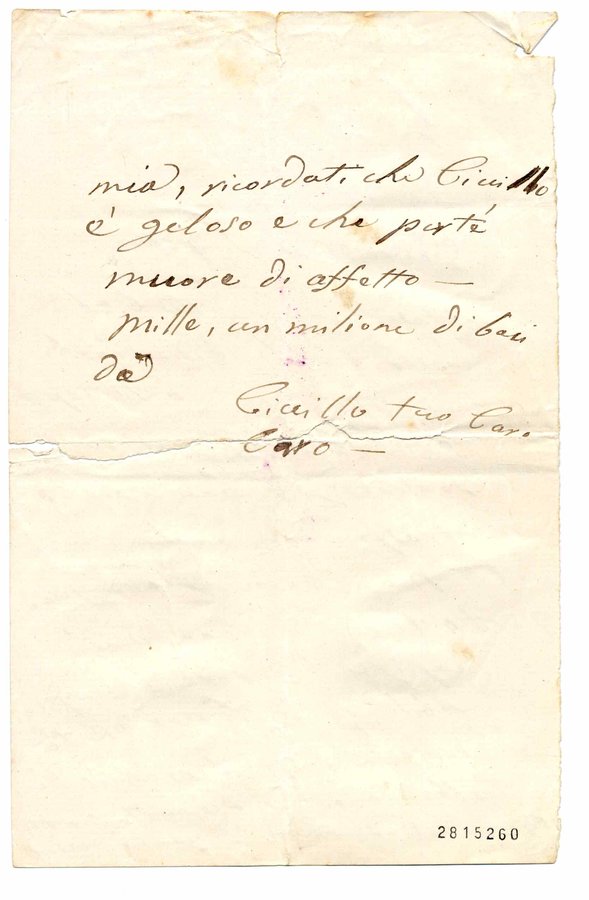 mia, ricordati che Ciccillo
è geloso e che per té
muore di affetto —
Mille, un milione di baci
da
Ciccillo tuo Caro
Caro —
2815260